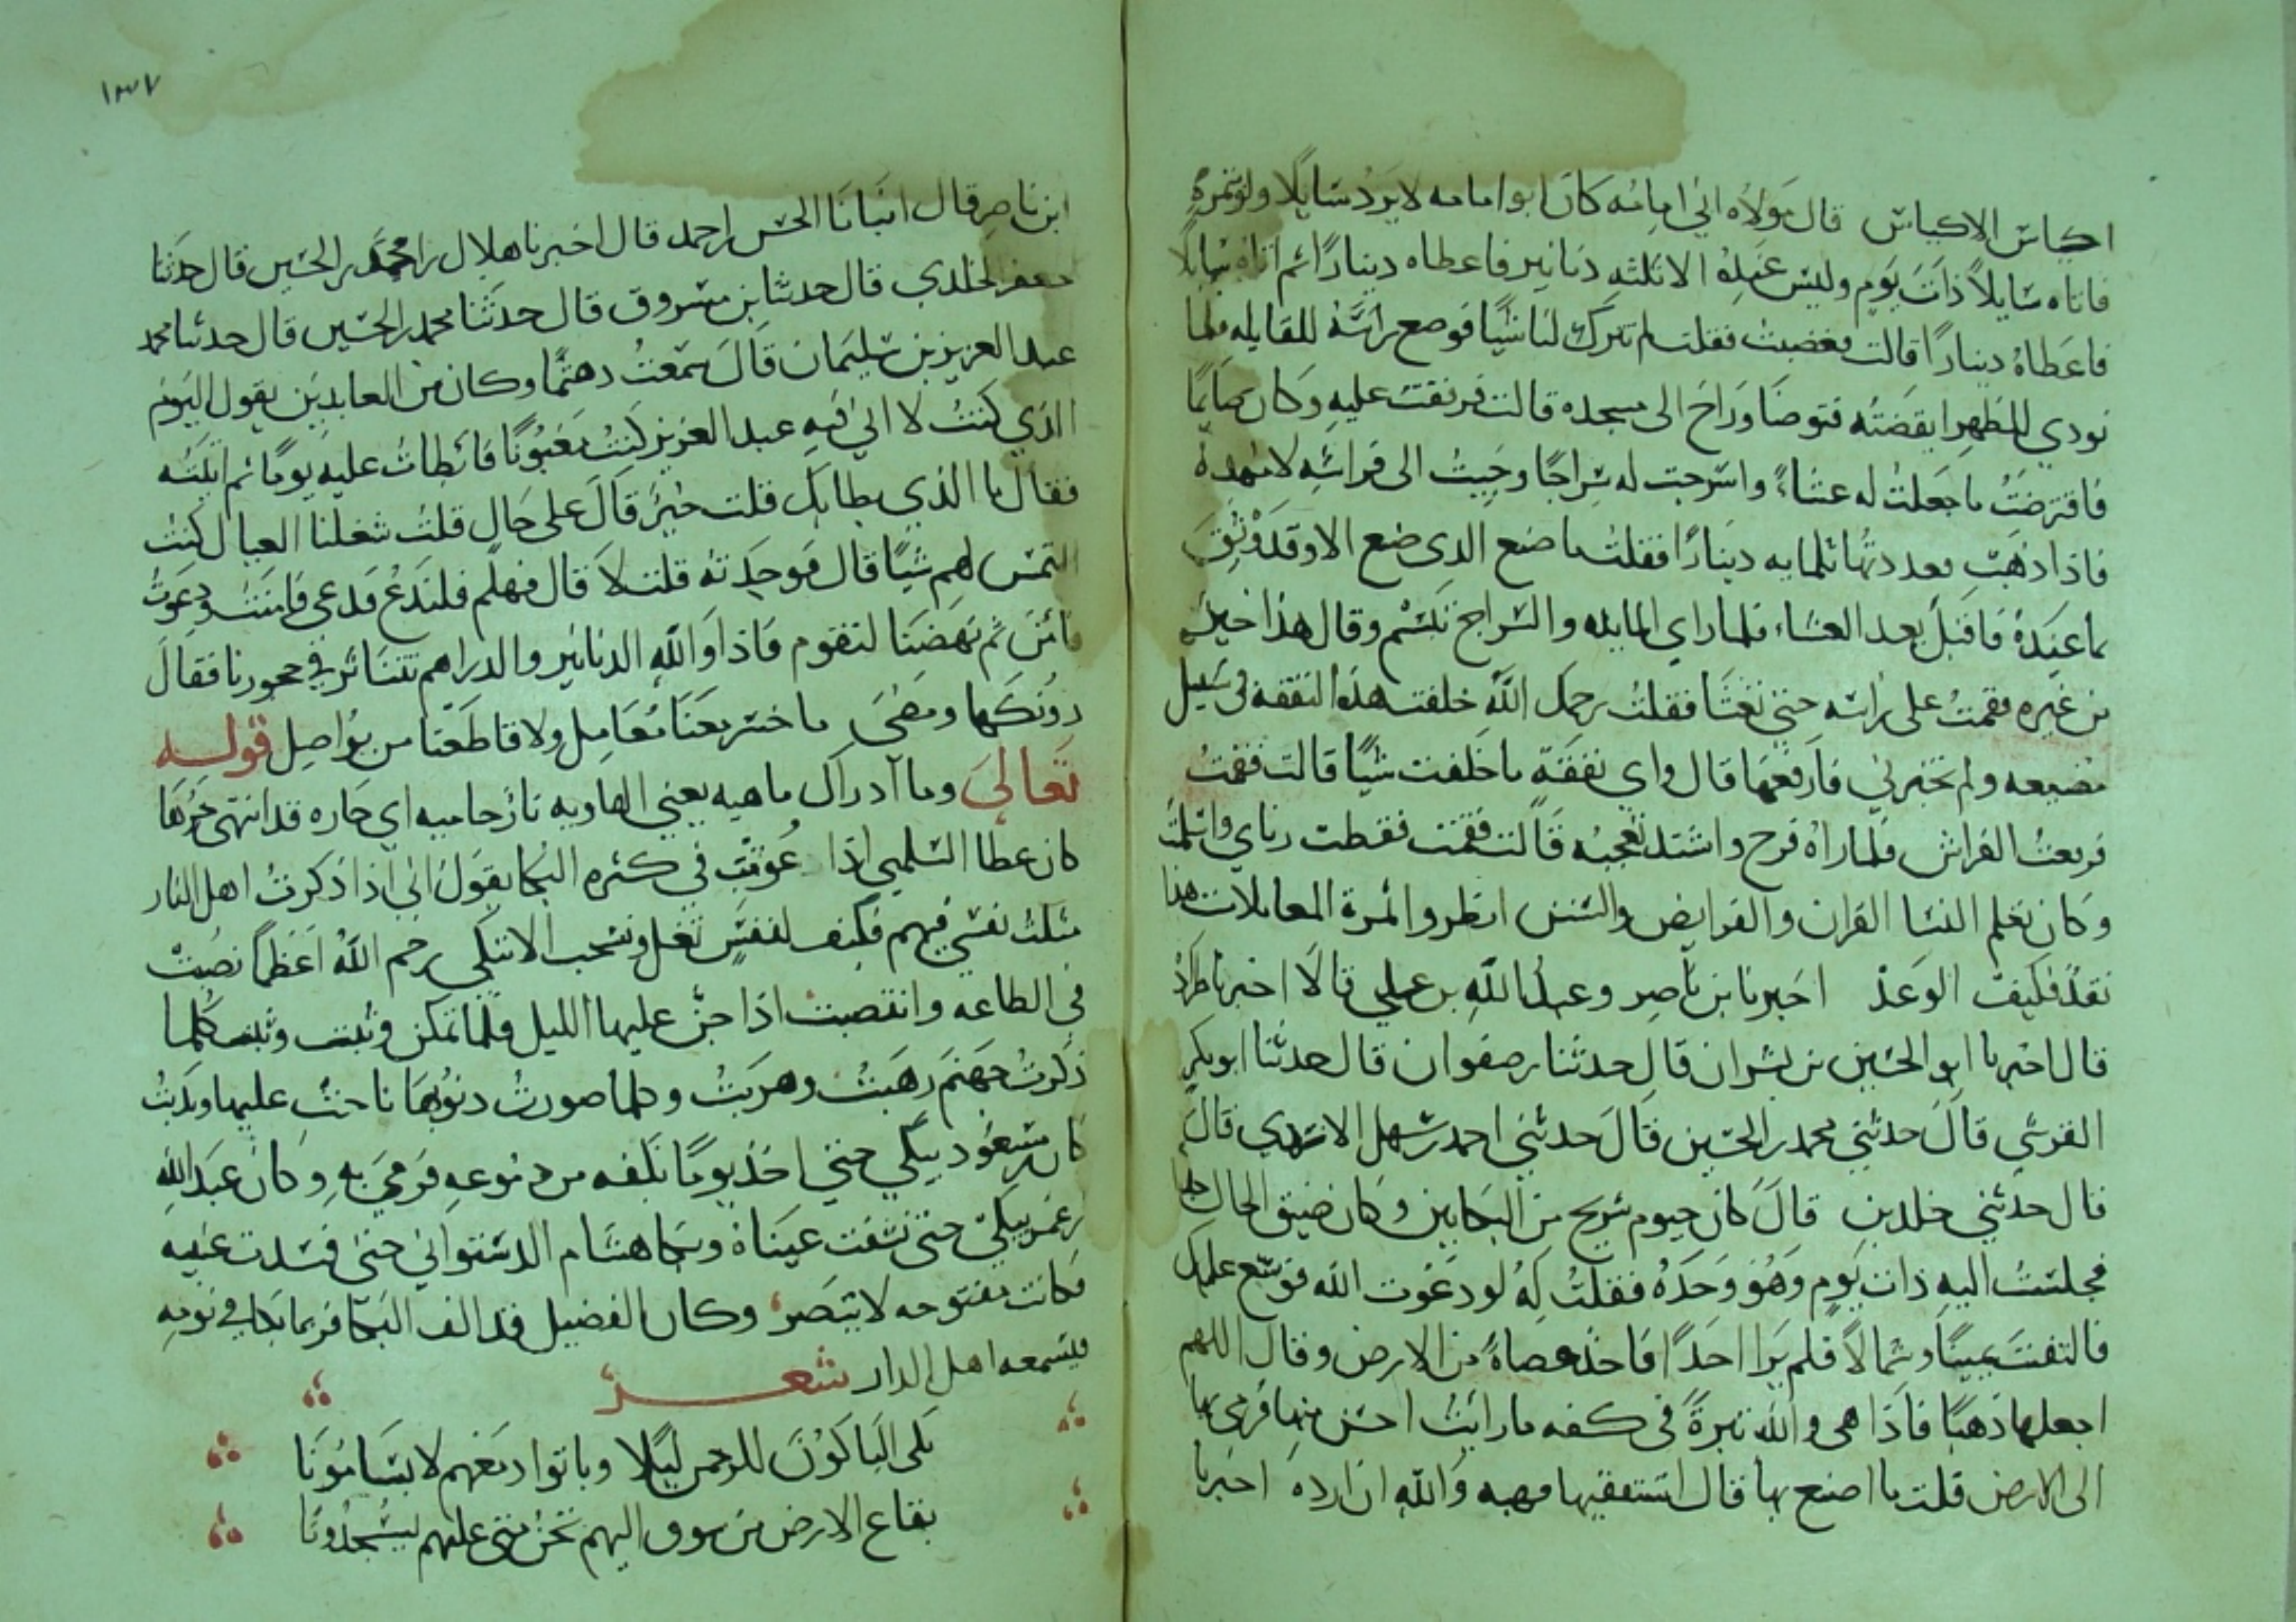 اكياس الاكياس قال مولاه ابي امامه كان ابوا مامه لا يرد سايلا ولو بتمرة
فاتاه سايلاً ذات يوم وليس عنده الا ثلثه دنانير فاعطاه دينارًا ثم اتاه سايلا
فاعطاه دينارًا قالت فغضبت فقلت لم تترك لنا شيًا فوضع راسه للقايله فلما
نودي للظهر ايقضته فتوضا وراح الى مسجده قالت فرفقت عليه وكان صايمًا
فاقترضت ما جعلت له عشاءً واسرجت له سراجًا وجيت الى فراشه لامهده
فاذا ذهب فعددتها ثلمايه دينارًا فقلت ما صنع الذى صنع الا وقد وثق
بما عنده فاقبل بعد العشاء فلما راي المايده والسراج تبسم وقال هذا خير
من غيره فقمت على راسه حتى تعشا فقلت رحمك الله خلفت هذه النفقه في سبيل
مضيعه ولم تخبرني فارفعها قال واي نفقة ما خلفت شيًا قالت فقمت
فرفعت الفراش فلما راه فرح واشتد تعجبه قالت فقمت فقطعت زناري واسلمت
وكان تعلم النسا القران والفرايض والسنن انظروا ثمرة المعاملات هذا
نقدٌ فكيف الوعد اخبرنا بن ناصر وعبدالله بن علي قالا اخبرنا طراد
قال اخبرنا ابو الحسين بن بشران قال حدثنا بن صفوان قال حدثنا ابو بكر
القرشي قال حدثني محمد بن الحسين قال حدثني احمد بن سهل الازدي قال
قال حدثني خلد بن قال كان حيوه بن شريح من البكايين وكان ضيق الحال جدا
فجلست اليه ذات يوم وهو وحده فقلت له لو دعوت الله فوسع عليك
فالتفت يمينًا وشمالاً فلم يرا احدًا فاخذ حصاةً من الارض وقال اللهم
اجعلها ذهبًا فاذا هى والله تبرةً فى كفه ما رايت احسن منها فرمى بها
الى الارض قلت ما اصنع بها قال استنفقها فهبه والله ان ارده اخبرنا
١٣٧
ابن ناصر قال انبانا الحسن بن احمد قال اخبرنا هلال بن محمد بن الحسين قال حدثنا
جعفر الخلدي قال حدثنا بن مسروق قال حدثنا محمد بن الحسين قال حدثنا محمد
عبد العزيز بن سليمان قال سمعت دهثما وكان من العابدين يقول اليوم
الذي كنت لا اتي فيه عبد العزيز كنت مغبونًا فابطات عليه يومًا ثم اتيته
فقال ما الذي بطا بك قلت خيرٌ قال على حال قلت شغلنا العيال كنت
التمس لهم شيًا قال فوجدته قلت لا قال فهلم فلندع فدعى فامنت ودعوت
فامن ثم نهضنا لنقوم فاذا والله الدنانير والدراهم تتناثر في حجورنا فقال
دونكها ومضى ما خسر معنا معامل ولا قاطعنا من يواصل قوله
تعالى وما آدراك ما هيه يعني الهاويه نارٌ حاميه اي حاره قد انتهى حرها
كان عطا السلمي اذا عوتب في كثره البكا يقول اني اذا ذكرت اهل النار
مثلت نفسي فيهم فكيف لنفسٍ تغل وتسحب الا تبكي رحم الله اعظما نصبت
في الطاعه وانتصبت اذا جن عليها الليل فلما تمكن وثبت وثبت كلما
ذكرت جهنم رهبت وهربت وكلما صورت ذنوبها ناحت عليها وندبت
كان بن مسعود يبكي حتى اخذ يومًا بكفه من دموعه فرمى به وكان عبد الله
بن عمر يبكي حتى نشفت عيناه وبكا هشام الدستواني حتى فسدت عينه
فكانت مفتوحه لا يبصر وكان الفضيل قد الف البكا فربما بكا في نومه
فيسمعه اهل الدار شعر
بكى الباكون للرحمن ليلا وباتوا دمعهم لا يسامونا
بقاع الارض من شوق اليهم تحن متى عليهم يسجدونا